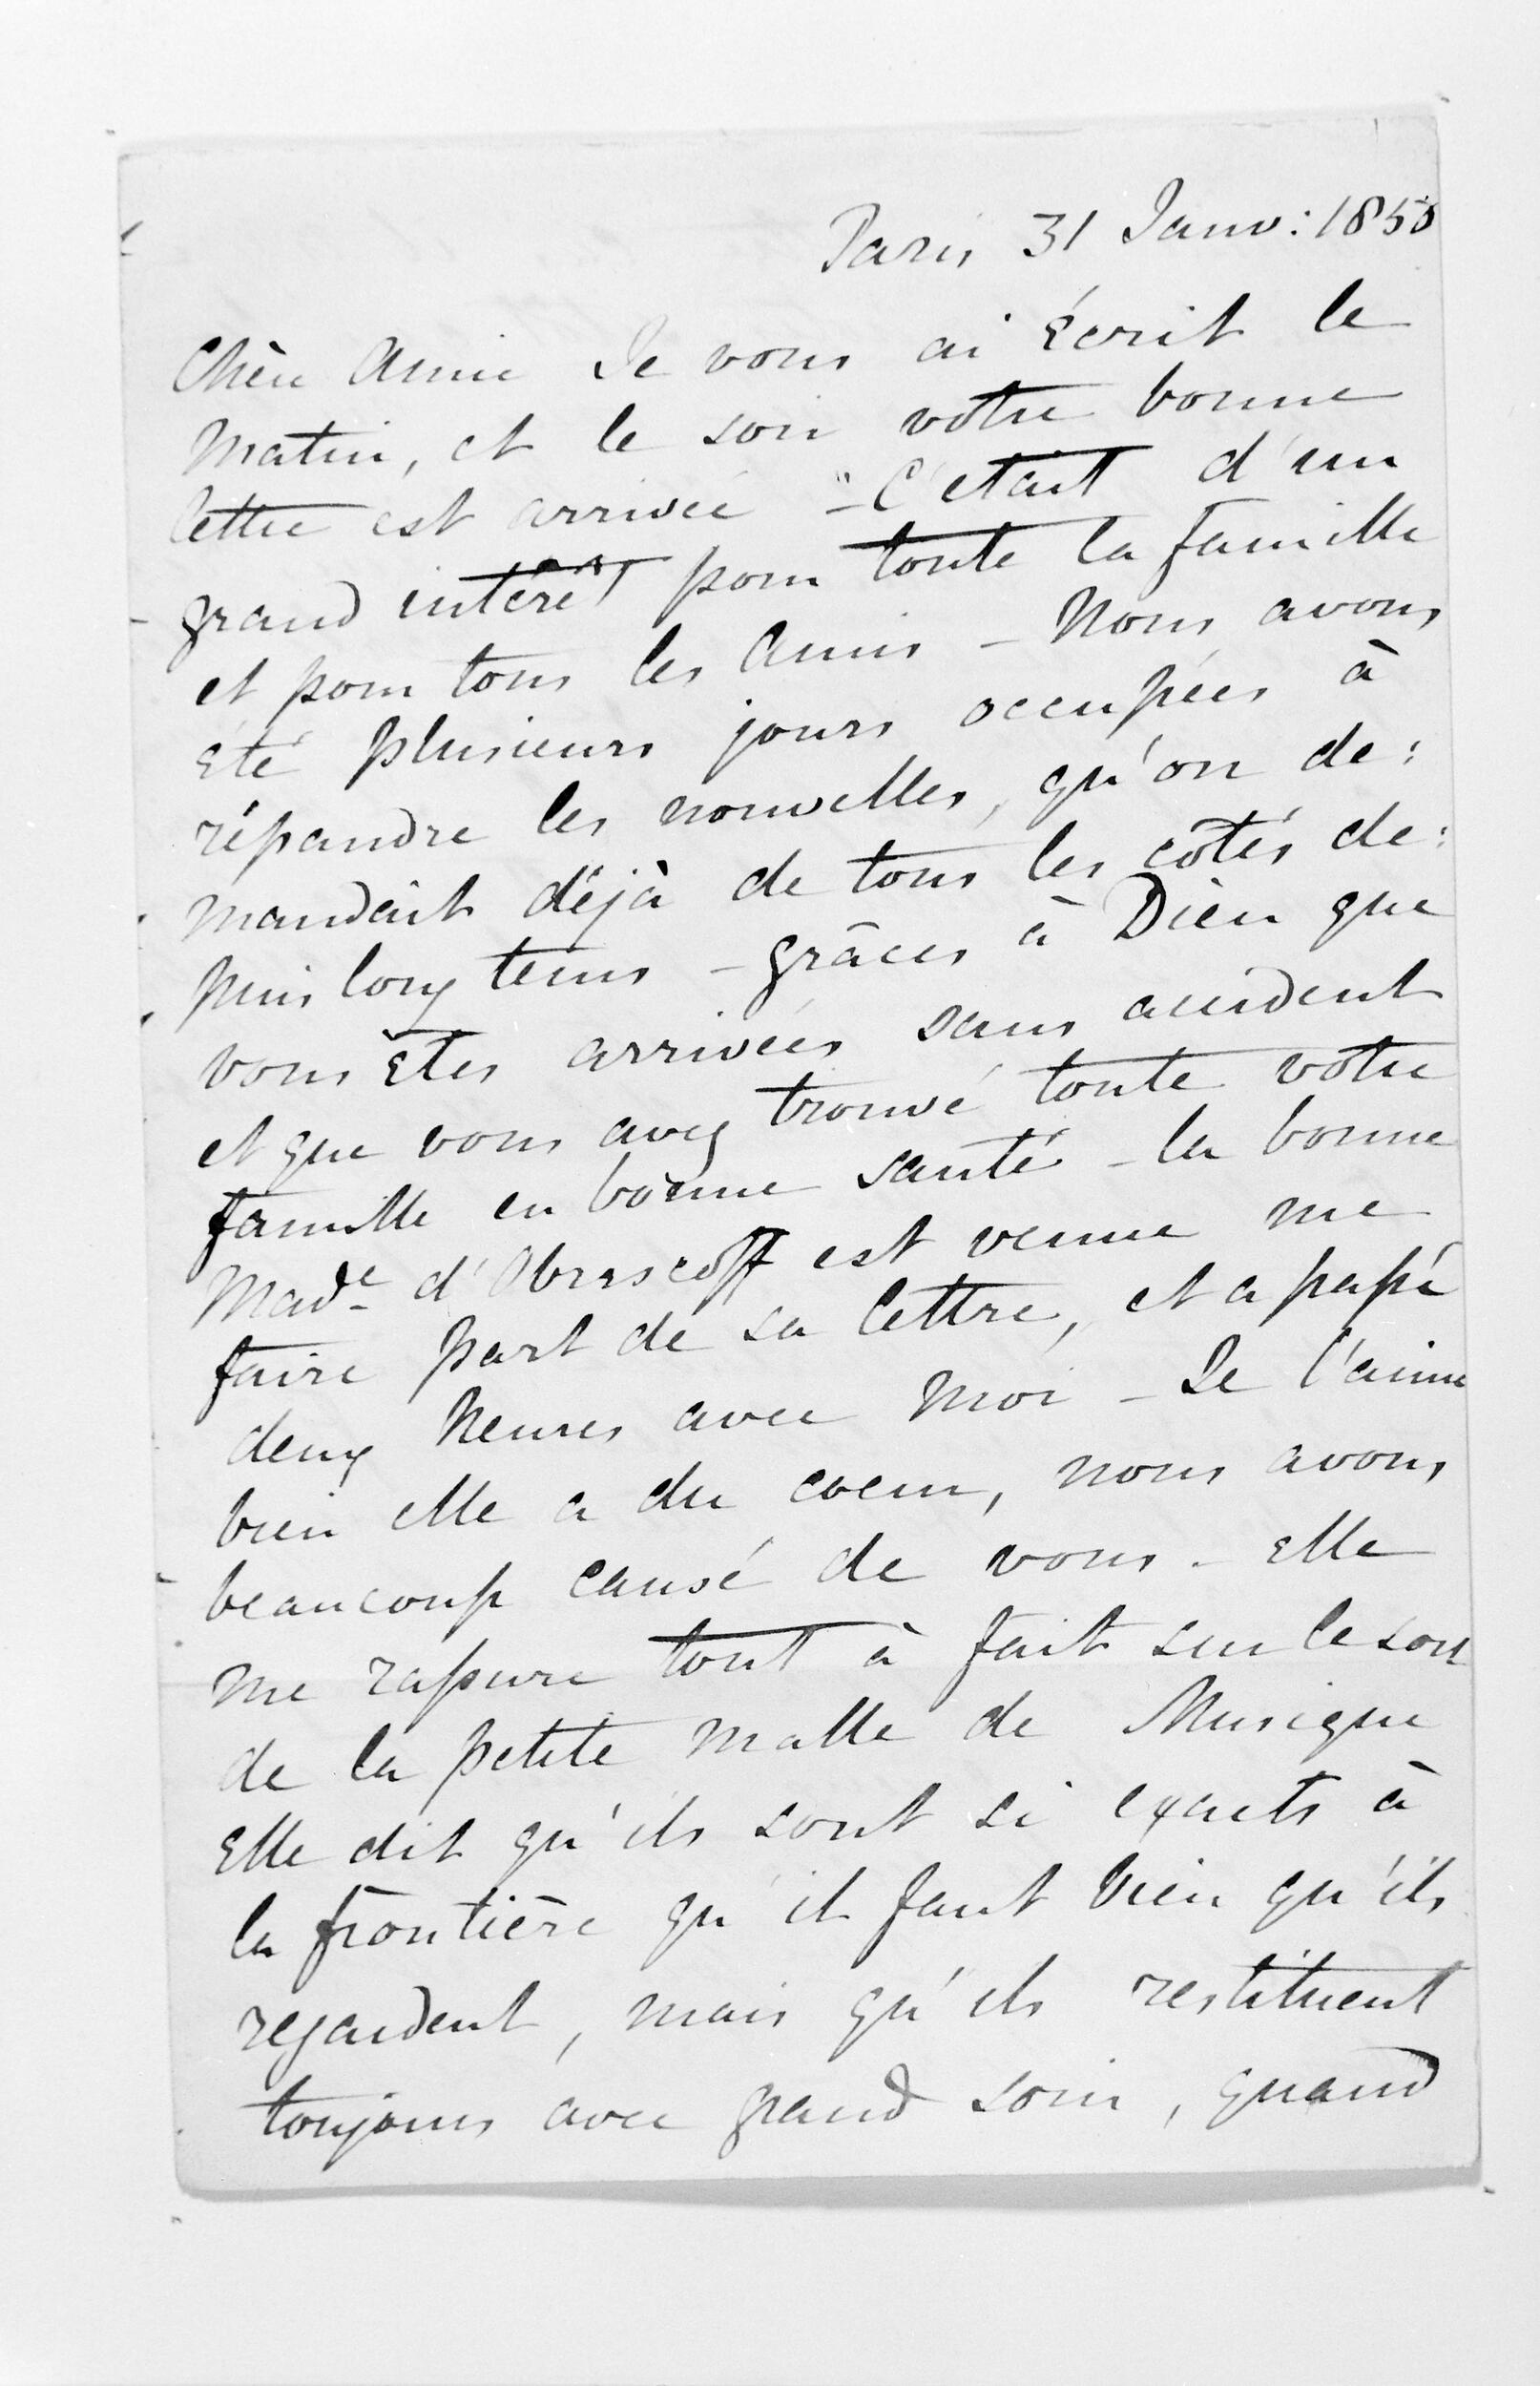 Paris 31 Janv: 1850
Chère Amie Je vous ai écrit le
matin, et le soir votre bonne
lettre est arrivée – C'etait d'un
grand intérêt pour toute la famille
et pour tous les Amis – Nous avons
été plusieurs jours occupées à
répandre les nouvelles, qu'on de:
mandait déjà de tous les côtés de:
puis long tems – grâces à Dieu que
vous êtes arrivées sans accident
et que vous avez trouvé toute votre
famille en bonne santé – la bonne
Made d'Obrescoff est venue me
faire part de sa lettre, et a passé
deux heures avec moi – Je l'aime
bien elle a du coeur, nous avons
beaucoup causé de vous – elle
me rassure tout à fait sur le sort
de la petite malle de Musique
elle dit qu'ils sont si exacts à
la frontière qu'il faut bien qu'ils
regardent, mais qu'ils restituent
toujours avec grand soin, quand